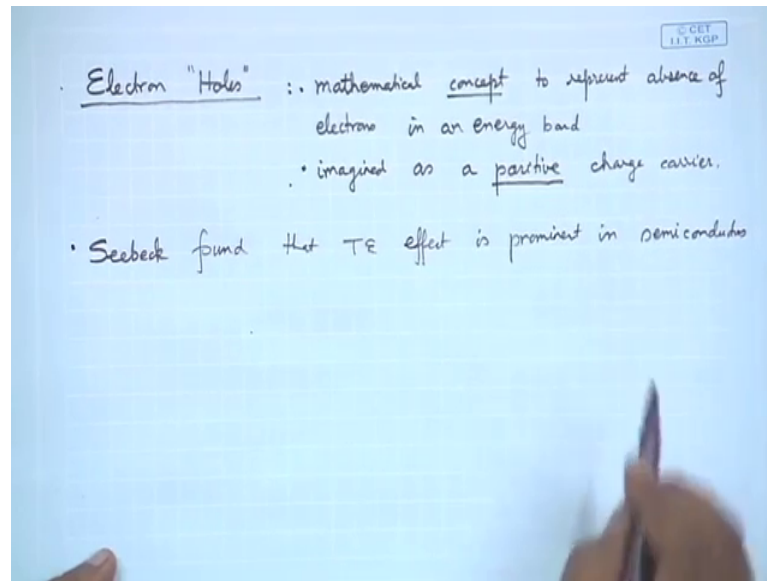 © CET
I.I.T. KGP
Electron "Holes" :• mathematical concept to represent absence of
electrons in an energy band
• imagined as a positive charge carrier.
• Seebeck found that TE effect is prominent in semiconductors